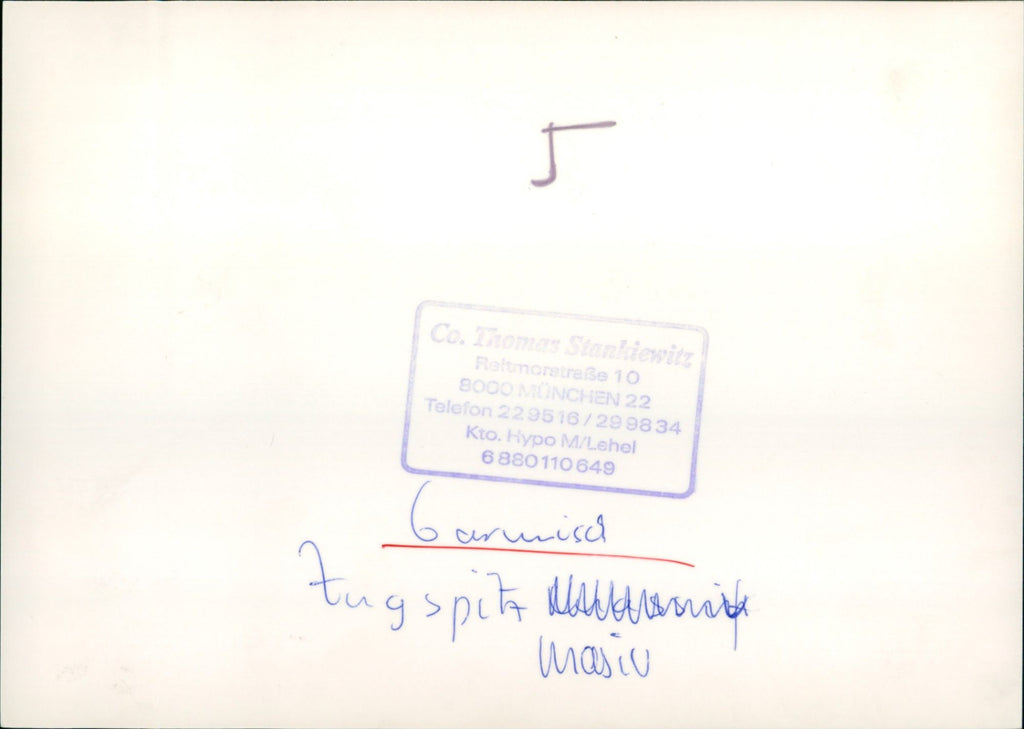 5
Co. Thomas Stankiewitz
Reitmorstraße 10
8000 MÜNCHEN 22
Telefon 229516 / 299834
Kto. Hypo M/Lehel
6880110649
Garmisch
Zugspitz
Masiv